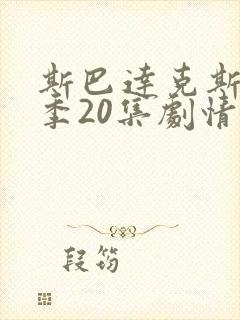 斯巴達克斯
季20集劇情
段筠